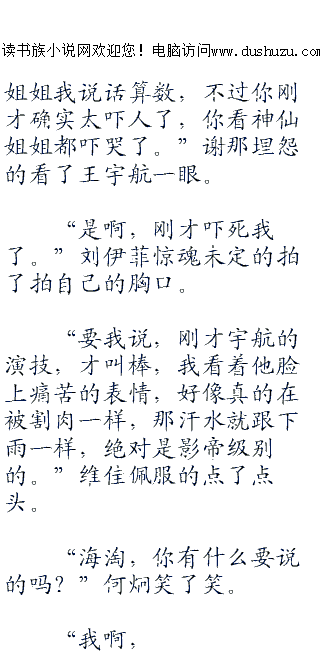 读书族小说网欢迎您！电脑访问www.dushuzu.com
姐姐我说话算数，不过你刚
才确实太吓人了，你看神仙
姐姐都吓哭了。”谢那埋怨
的看了王宇航一眼。
“是啊，刚才吓死我
了。”刘伊菲惊魂未定的拍
了拍自己的胸口。
“要我说，刚才宇航的
演技，才叫棒，我看着他脸
上痛苦的表情，好像真的在
被割肉一样，那汗水就跟下
雨一样，绝对是影帝级别
的。”维住佩服的点了点
头。
“海淘，你有什么要说
的吗？”何炯笑了笑。
“我啊，